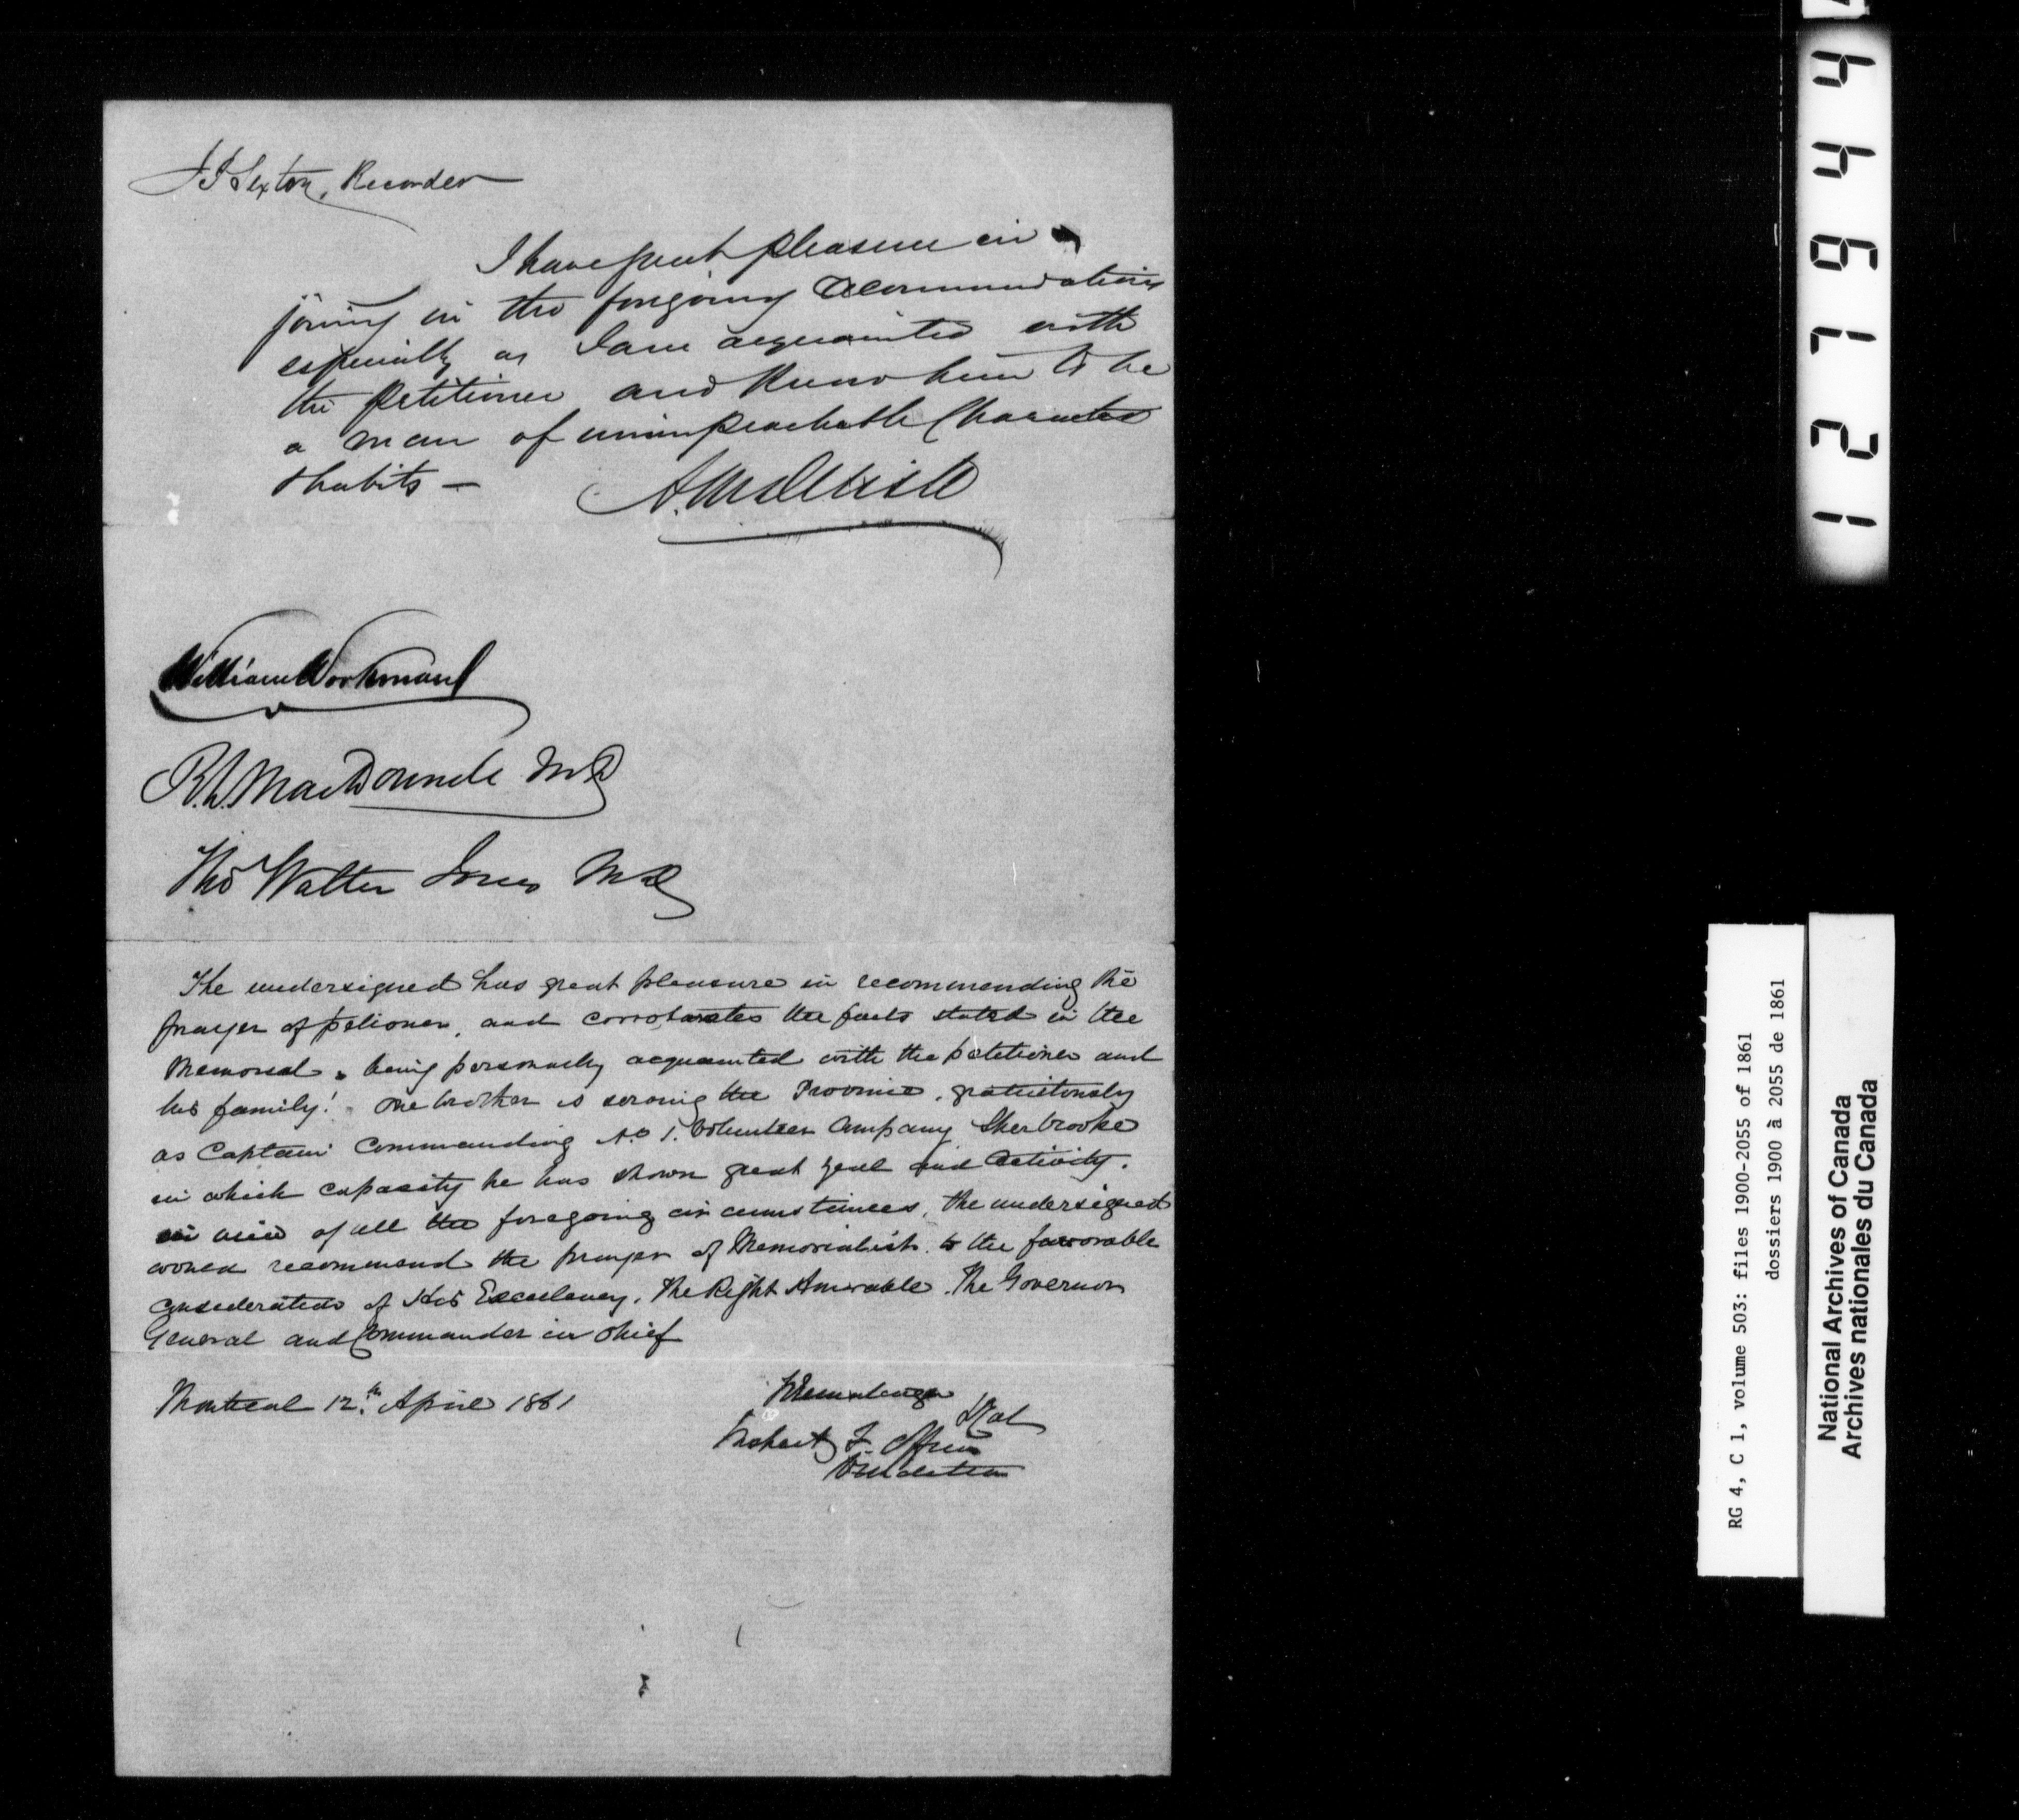 J P Sexton, Recorder
I have great pleasure in
joining in the foregoing recommendation
especially as I am acquainted with
the petitioner and know him to be
a man of unimpeachable Character
& habits —
William Workman
R. L. MacDonnell MD
Thos Walter Jones MD
The undersigned has great pleasure in recommending the
prayer of petioner, and corroborates the facts stated in the
Memorial, being personally acquainted with the petitioner and
his family! One brother is serving the Province, gratuitously
as Captain Commanding No 1. Volunteer Company Sherbrooke
in which capacity he has shown great zeal and activity.
in view of all the foregoing circumstances, the undersigned
would recommend the prayer of Memorialist to the favorable
consideration of His Excellency, The Right Honorable The Governor
General and Commander in Chief
Montreal 12th April 1861
Lt Col
127944
RG 4, C 1, volume 503: files 1900-2055 of 1861
dossiers 1900 à 2055 de 1861
National Archives of Canada
Archives nationales du Canada